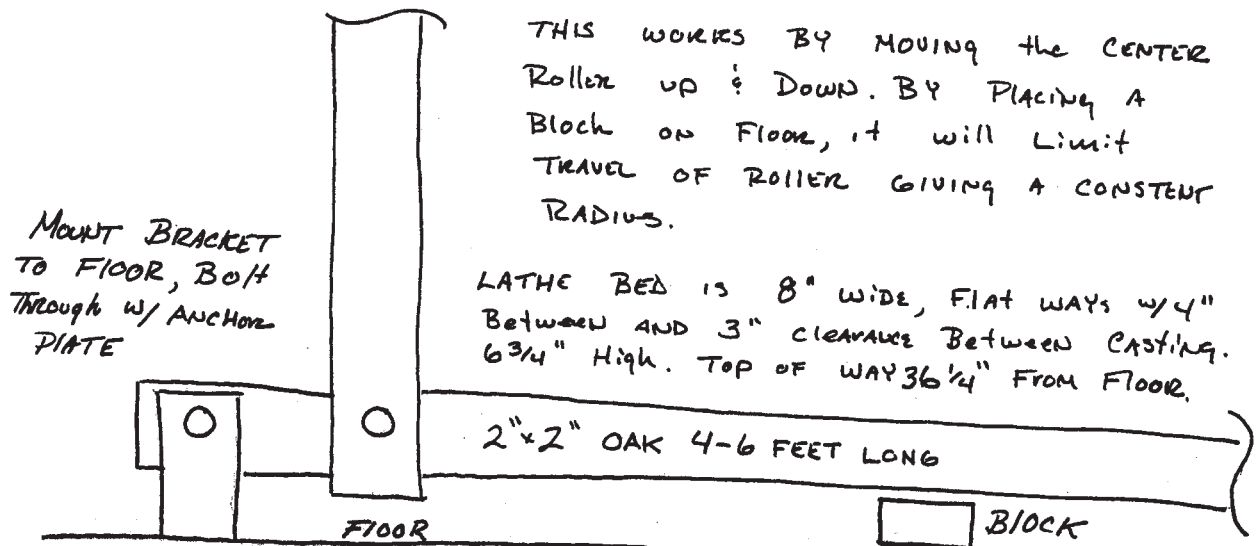 THIS WORKS BY MOVING the CENTER
Roller up & DOWN. BY PLACING A
Block ON Floor, it will Limit
TRAVEL OF ROLLER GIVING A CONSTENT
RADIUS.
MOUNT BRACKET
TO FLOOR, Bolt
Through w/ ANCHOR
PLATE
LATHE BED IS 8" WIDE, FlAt WAYs w/ 4"
Between AND 3" clearance Between CASTing.
6 3/4" High. TOP OF WAY 36 1/4" FROM FLOOR.
2"x2" OAK 4-6 FEET LONG
FLOOR
BLOCK